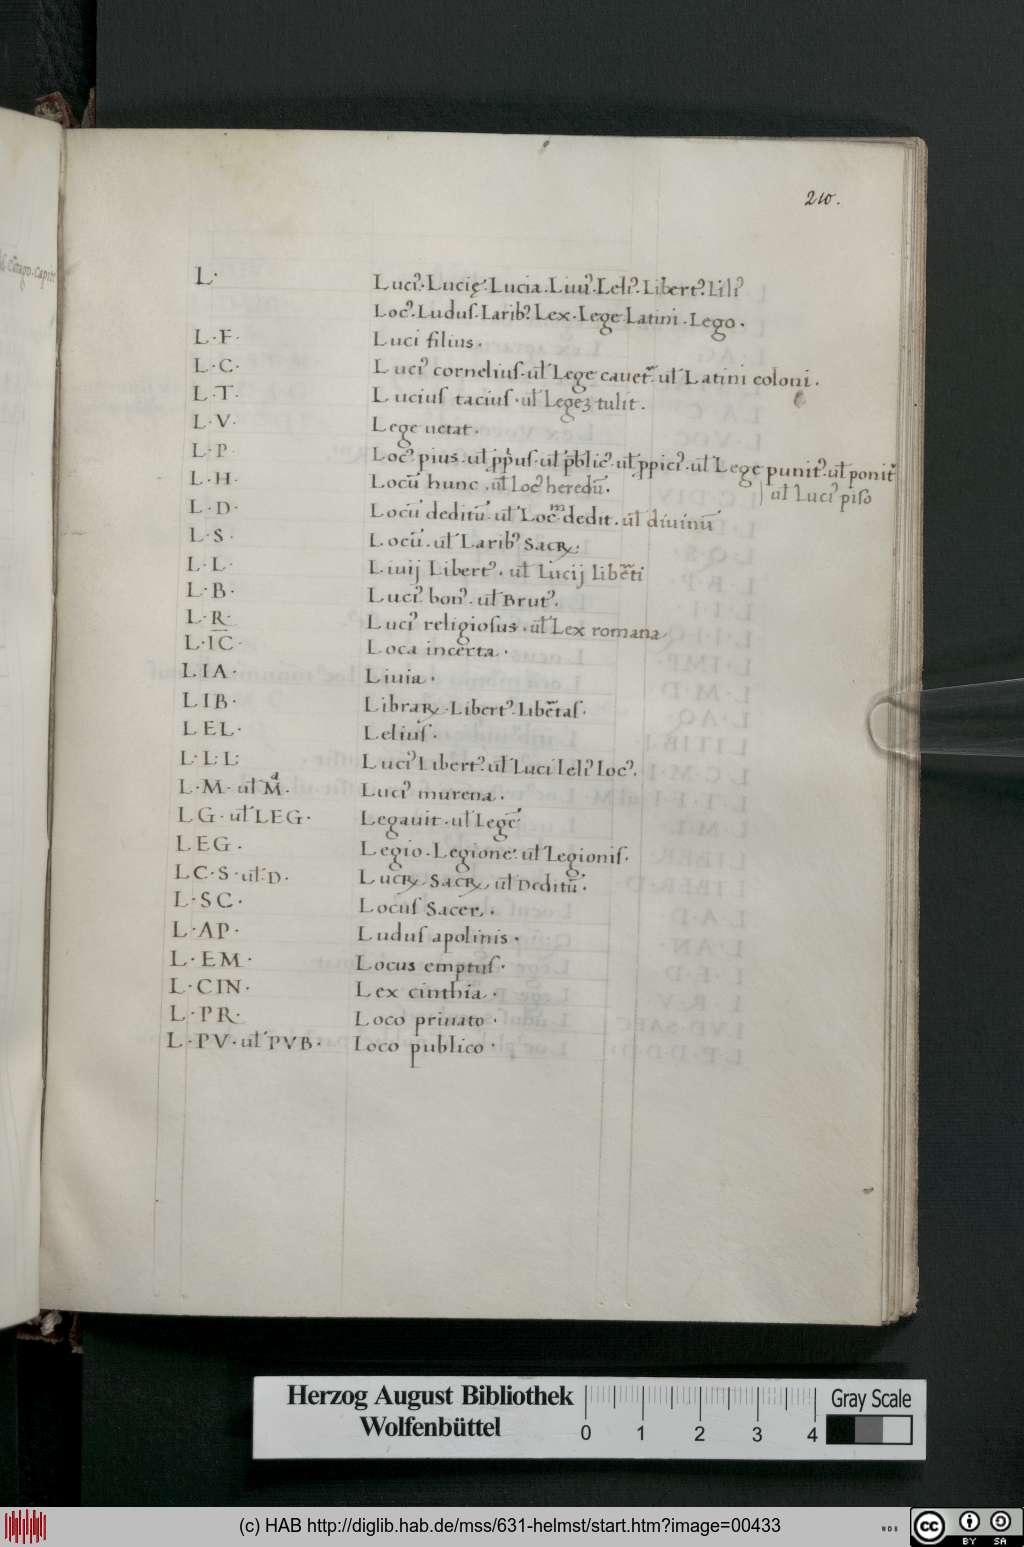 210.
L· Luciꝰ· Lucię· Lucia· Liuiꝰ· Leliꝰ· Libertꝰ· Liliꝰ
Locꝰ· Ludus· Laribꝰ· Lex· Lege· Latini· Lego·
L·F· Luci filius·
L·C· Luciꝰ cornelius· ul̄ Lege cauet᷑· ul̄ Latini coloni·
L·T· Lucius tacius· ul̄ legeꝫ tulit·
L·V· Lege uetat·
L·P· Locꝰ pius· ul̄ ꝓpꝰus· ul̄ pb̄licꝰ· ul̄ ꝓpiciꝰ· ul̄ Lege punitꝰ· ul̄ ponit᷑
L·H· Locū hunc· ul̄ locꝰ heredū·
ul̄ Luciꝰ piso
L·D· Locū deditū· ul̄ Locꝰ dedit· ul̄ diuinū
L·S· Locū· ul̄ Laribꝰ Sacꝝ·
L·L· Liuij Libertꝰ· ul̄ Lucij lib̄eti
L·B· Luciꝰ bonꝰ· ul̄ Brutꝰ·
L·R· Luciꝰ religiosus· ul̄ Lex romana
L·I̅C̅· Loca incerta·
LIA· Liuia·
LIB· Libraꝝ· Libertꝰ· Lib̄tas·
LEL· Lelius·
L·L·L· Luciꝰ Libertꝰ· ul̄ Luci leliꝰ locꝰ·
L·M· ul̄ M· Luciꝰ murena·
LG· ul̄ LEG· Legauit· ul̄ Legē
LEG· Legio· Legione· ul̄ Legionis·
LC·S· ul̄ D· Lucꝝ Sacꝝ, ul̄ Deditū·
L·SC· Locus Sacer·
L·AP· Ludus apolinis·
L·EM· Locus emptus·
L·CIN· Lex cinthia·
L·PR· Loco priuato·
L·PV· ul̄ PVB· Loco publico·
Herzog August Bibliothek
Wolfenbüttel
0 1 2 3 4
Gray Scale
(c) HAB http://diglib.hab.de/mss/631-helmst/start.htm?image=00433
WDB
cc BY SA